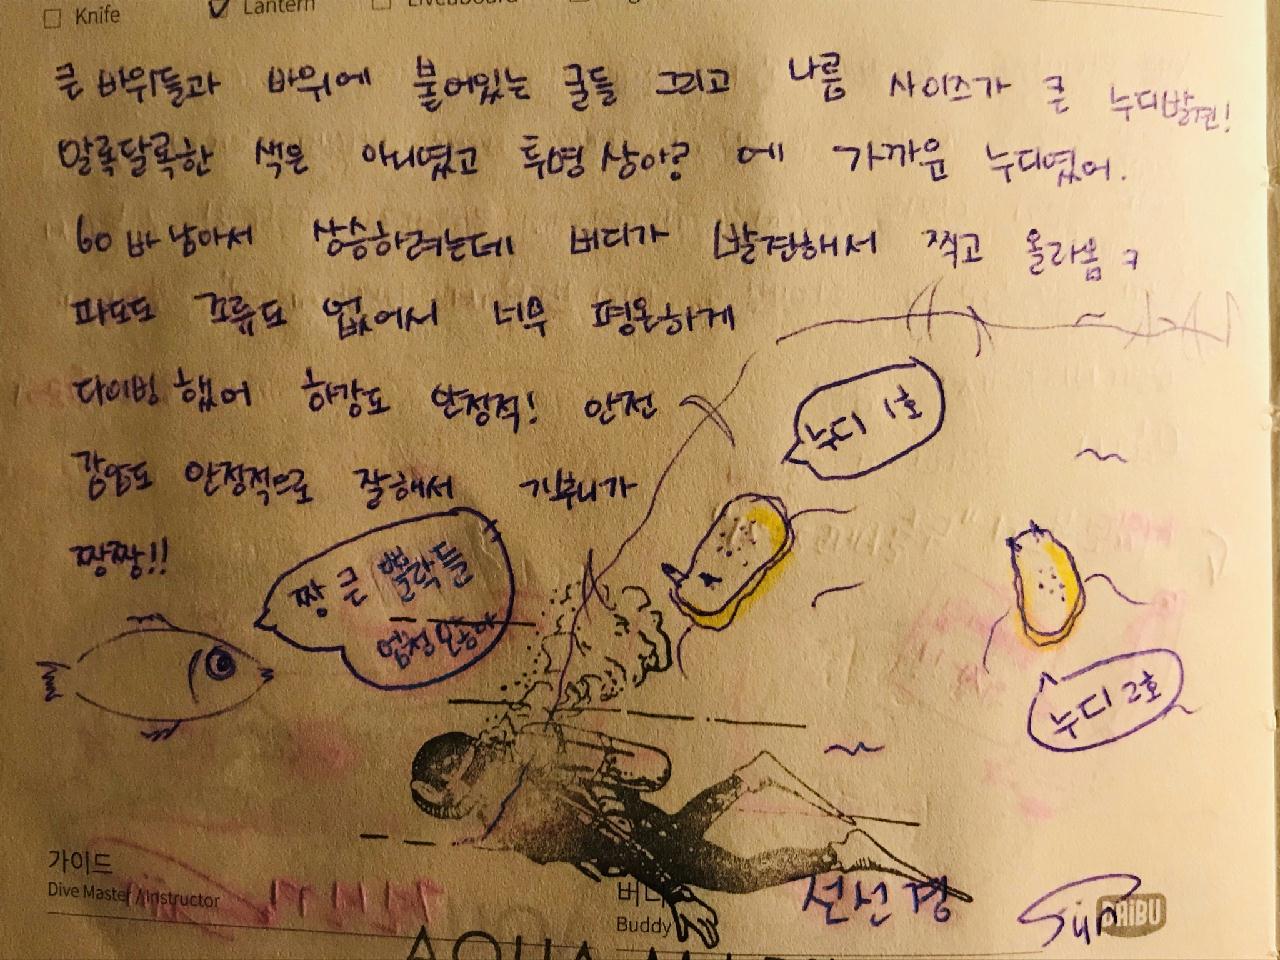 Knife
Lantern
큰 바위들과 바위에 붙어있는 굴들 그리고 나름 사이즈가 큰 누디발견!
알록달록한 색은 아니였고 투명 상아? 에 가까운 누디였어.
60바 남아서 상승하려는데 버디가 발견해서 찍고 올라옴 ㅋ
파도도 조류도 없어서 너무 평온하게
다이빙 했어 하강도 안정적! 안전
감압도 안정적으로 잘해서 기부니가
짱짱!!
누디 1호
짱 큰 뽈락들
엄청 많음
누디 2호
가이드
Dive Master / Instructor
Buddy
선선경
DAIBU